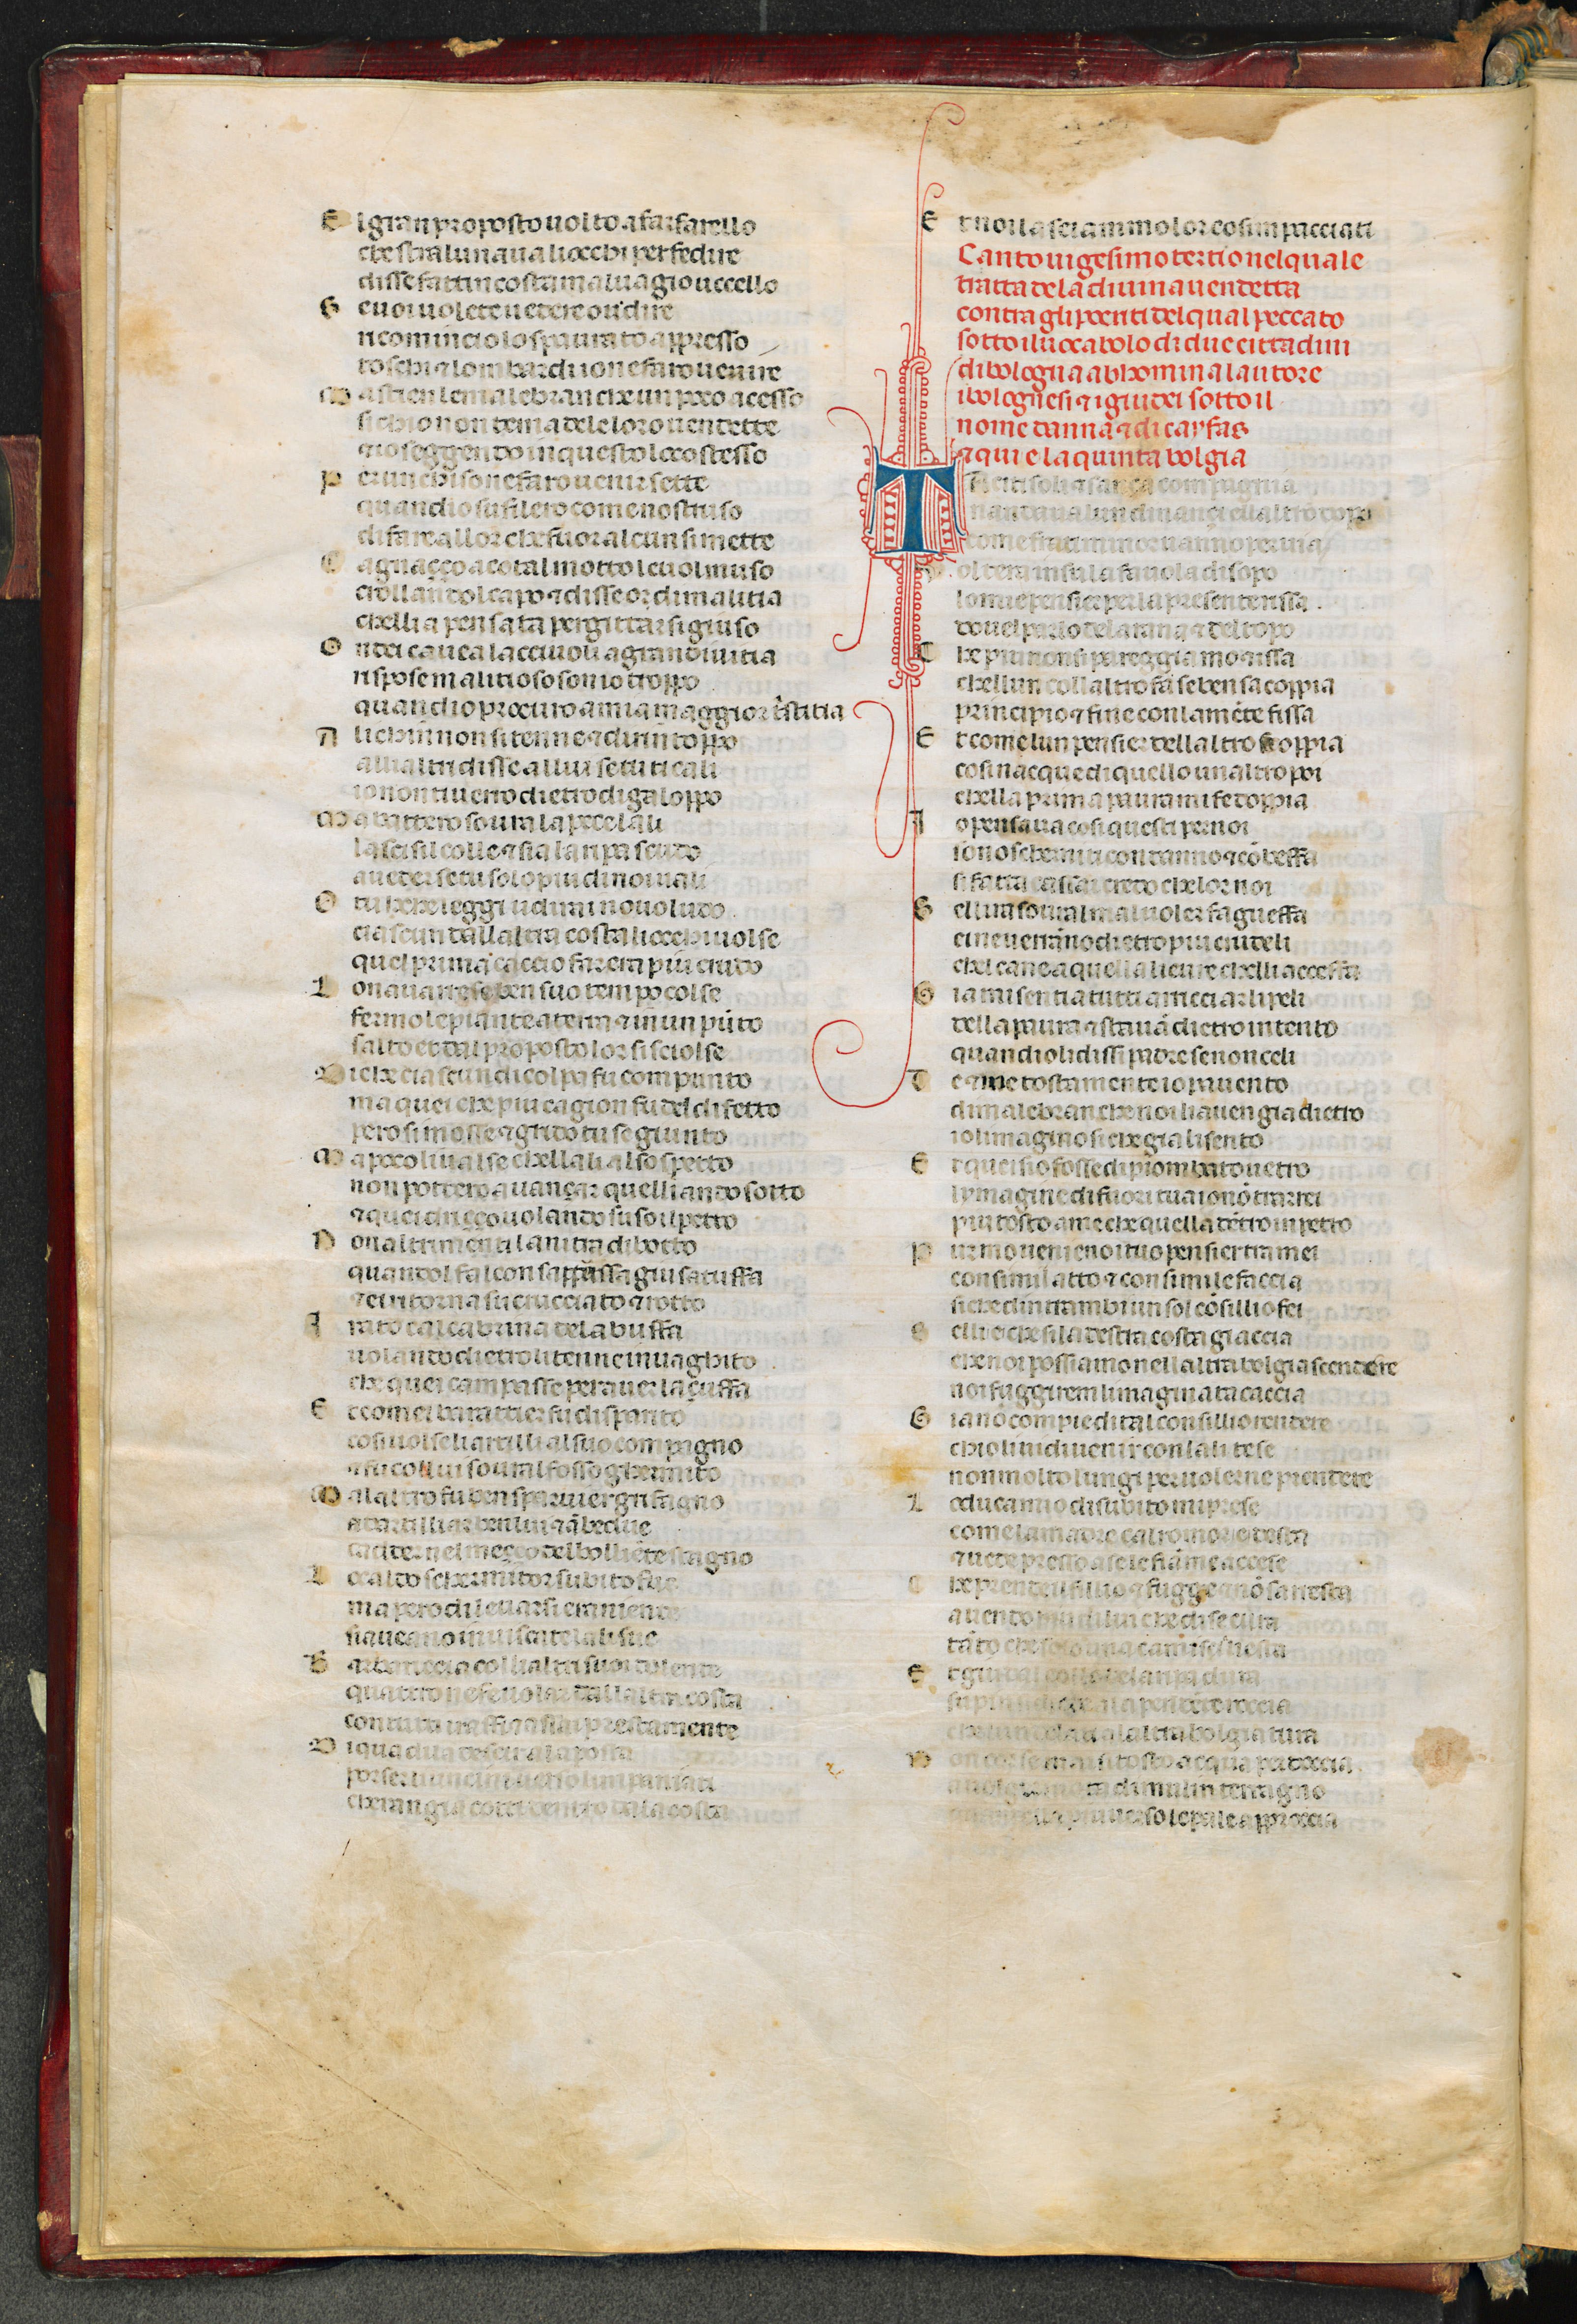 E l gran proposto uolto a farfarello
che stralunaua li occhi per fedire
disse fattin costa maluagio uccello
S e uoi uolete uedere o udire
ricomincio lo spaurato appresso
toschi o lombardi io ne faro uenire
M a stien le male branche un poco a cesso
si chio non tema dele loro uendette
⁊ io seggendo in questo loco stesso
P er un chi sone faro uenir sette
quandio sufilero come nostruso
di fare allor che fuor alcun si mette
C agnaçço a cotal motto leuol muso
crollandol capo ⁊ disse odi malitia
chelli a pensata per gittarsi giuso
O ndei cauea lacciuoli a gran diuitia
rispose malitioso son io troppo
quandio procuro a mia maggior tristitia
A lichin non si tenne ⁊ di rintoppo
alli altri disse allui se tu ti cali
io non ti uerro dietro di galoppo
M a battero soura la pece lali
lascisil colle ⁊ sia la ripa scudo
a ueder se tu solo piu di noi uali
O tu che leggi udirai nouo ludo
ciascun dallaltra costa li occhi uolse
quel prima caccio far era piu crudo
L o nauarrese ben suo tempo colse
fermo le piante a terra ⁊ in un púto
salto et dal proposto lor si sciolse
D i che ciascun di colpa fu compunto
ma quei che piu cagion fu del difetto
pero si mosse ⁊ grido tu se giunto
M a poco li ualse chellali al sospetto
non potero auançar quelli ando sotto
⁊ quei driçço uolando suso il petto
N on altrimenti lanitra di botto
quandol falcon sappressa giu satuffa
⁊ ei ritorna su crucciato ⁊ rotto
I rato calcabrina dela buffa
uolando dietro li tenne inuaghito
che quei campasse per auer la çuffa
E t comel barattier fu disparito
cosi uolse li artilli al suo compagno
⁊ fu collui soural fosso ghermito
M a laltro fu ben sparuier grifagno
ad artilliar ben lui ⁊ ābedue
cadder nel meçço del bolliēte stagno
L o caldo schermitor subito fue
ma pero di leuarsi era niente
si aueano inuiscate lali sue
B arbariccia colli altri suoi dolente
quattro ne fe uolar dallaltra costa
con tutti i raffi ⁊ assai prestamente
D i qua di la discesero ala posta
porser li uncini uerso limpaniati
cheran gia cotti dentro dala costa
E t noi lasciammo lor cosi impacciati
Canto uigesimo tertio nel quale
tratta dela diuina uendetta
contra gli ipocriti del qual peccato
sotto il uocabolo di due cittadini
di bologna abhomina lautore
i bolognesi ⁊ i giudei sotto il
nome danna ⁊ di cayfas
⁊ qui e la quinta bolgia
T aciti soli ⁊ sança compagnia
nandauam lun dinançi ellaltro dopo
come frati minor uanno per uia
V olt era in su la fauola disopo
lo mie pensier per la presente rissa
douel parlo dela rana ⁊ del topo
C he piu non si pareggia mo ⁊ issa
chellun collaltro fa se ben sacoppia
principio ⁊ fine con la mēte fissa
E t come lun pensier dellaltro scoppia
cosi nacque di quello un altro poi
che la prima paura mi fe doppia
I o pensaua cosi questi per noi
sono scherniti con danno ⁊ cō beffa
si fatta cassai credo che lor noi
S e llira soural mal uoler sagueffa
ei ne uerrāno dietro piu crudeli
chel cane a quella lieure chelli acceffa
G ia mi sentia tutti arricciar li peli
della paura ⁊ staua dietro intento
quandio li dissi padre se non celi
T e ⁊ me tostamente io pauento
di malebranche noi li auen gia dietro
io limagino si che gia li sento
E t quei sio fosse di piombato uetro
lymagine di fuori tua io nō trarrei
piu tosto a me che quella dētro impetro
P ur mo uenieno i tuo pensier tra mei
con simil atto ⁊ con simile faccia
si che dintrambi un sol cōsillio fei
S elli e che si la destra costa giaccia
che noi possiamo nellaltra bolgia scendere
noi fuggirem limaginata caccia
G ia nō compie di tal consillio rendere
chio li uidi uenir con lali tese
non molto lungi per uolerne prendere
L o duca mio di subito mi prese
come la madre cal romore e desta
⁊ uede presso a se le fiāme accese
C he prende il fillio ⁊ fugge ⁊ nō sarresta
auendo piu di lui che di se cura
tāto che solo una camiscia uesta
E t giu dal collo dela ripa dura
supin si diede ala pendēte roccia
che lun dei lati alaltra bolgia tura
N on corse mai si tosto acqua per doccia
a uolger rota di mulin terragno
quandella piu uerso le pale approccia